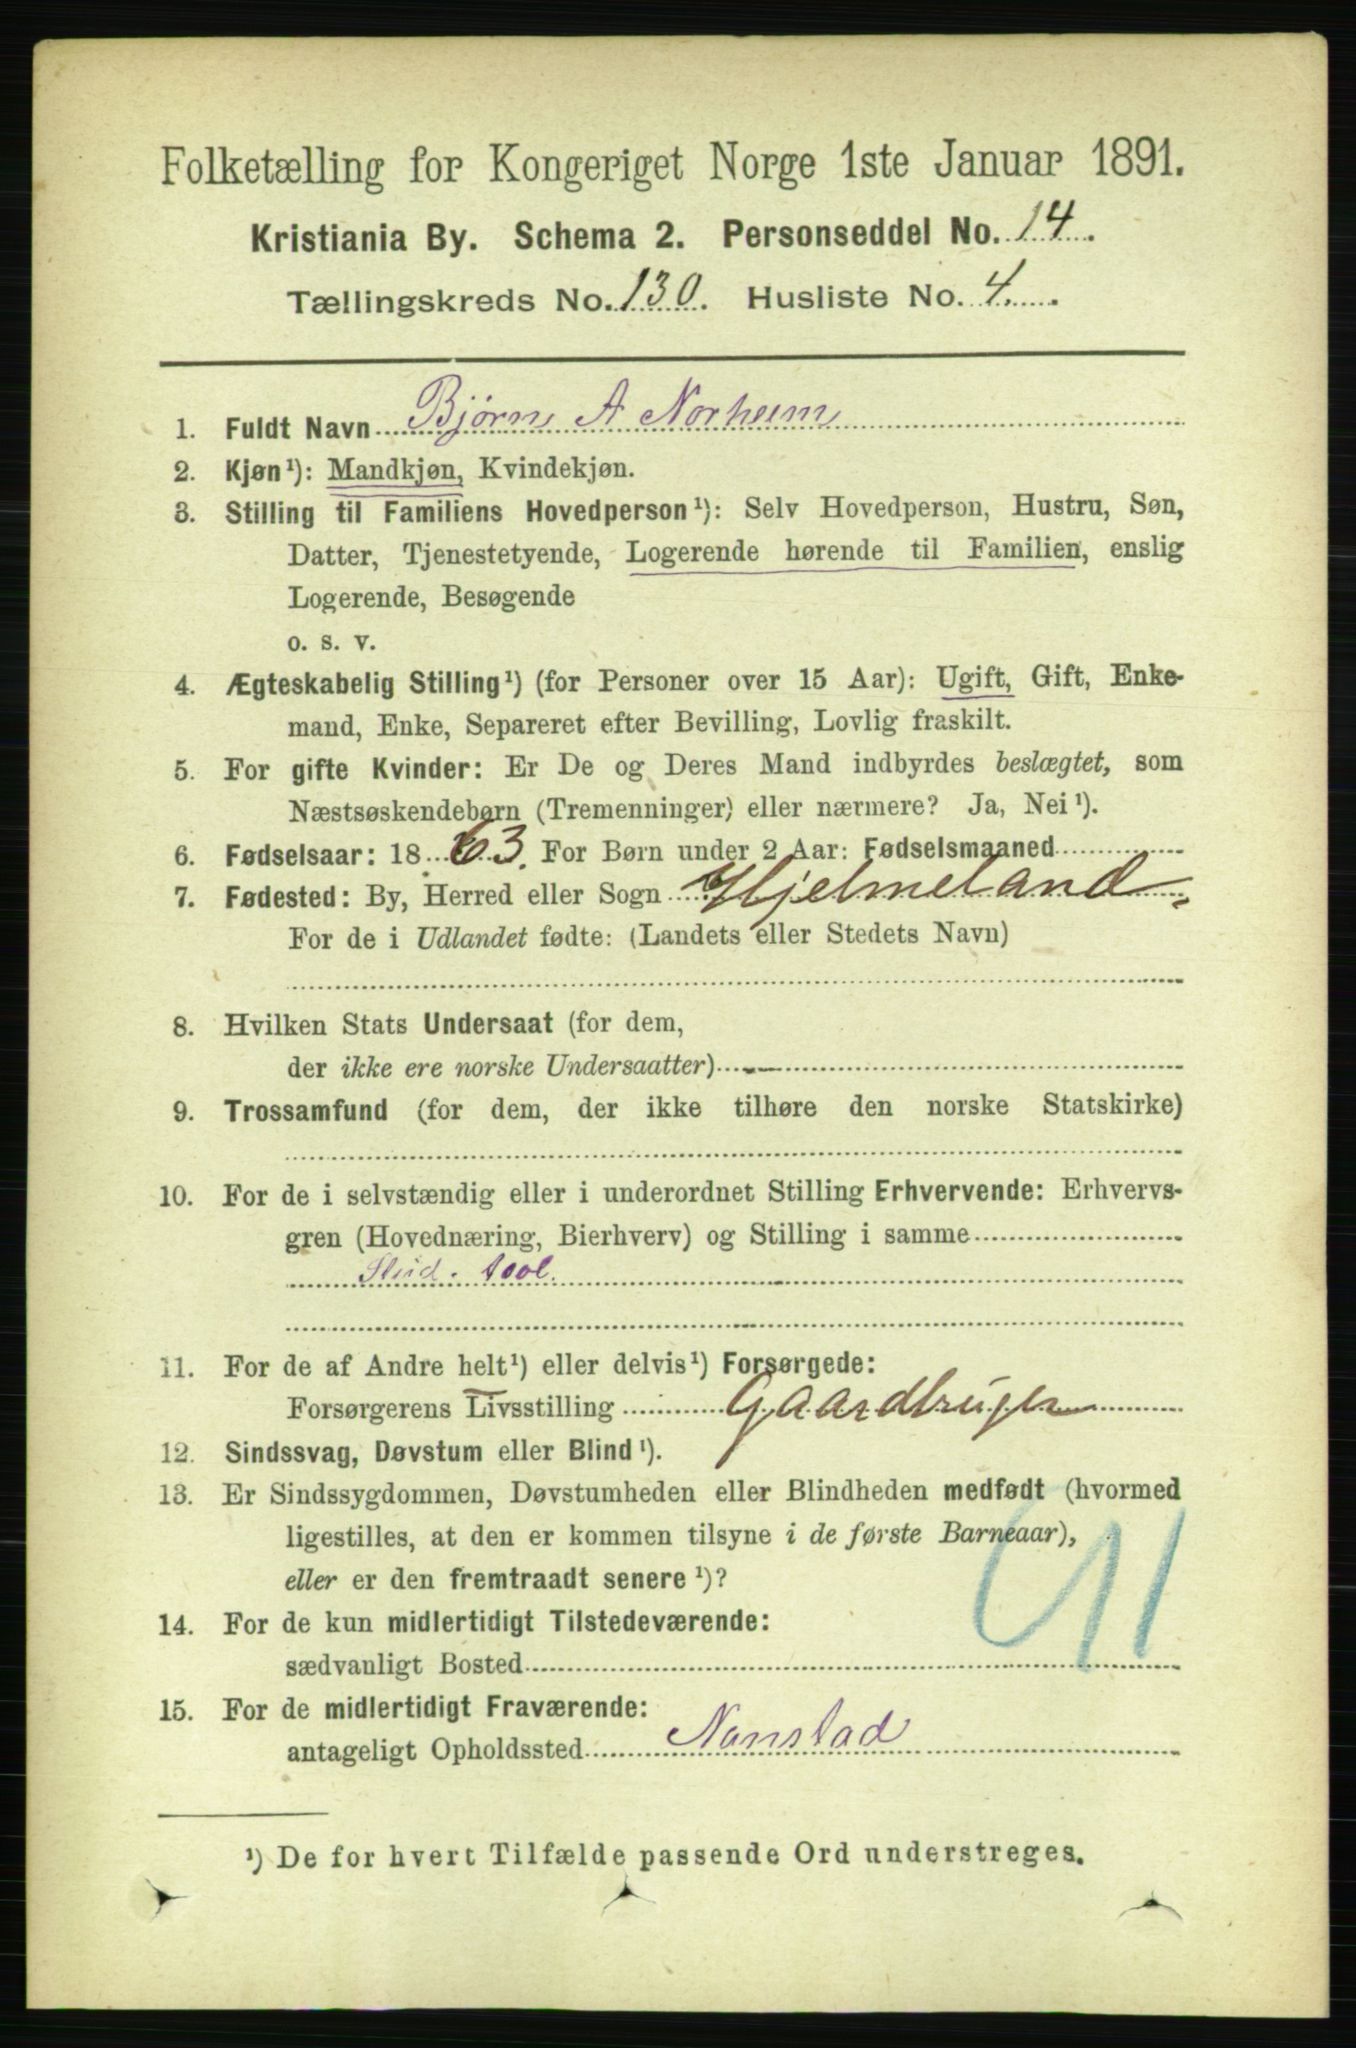 Folketælling for Kongeriget Norge 1ste Januar 1891.
Kristiania By. Schema 2. Personseddel No. 14.
Tællingskreds No. 130. Husliste No. 4.
1. Fuldt Navn Bjørn A Norheim
2. Kjøn¹): Mandkjøn, Kvindekjøn.
3. Stilling til Familiens Hovedperson¹): Selv Hovedperson, Hustru, Søn,
Datter, Tjenestetyende, Logerende hørende til Familien, enslig
Logerende, Besøgende
o. s. v.
4. Ægteskabelig Stilling¹) (for Personer over 15 Aar): Ugift, Gift, Enke-
mand, Enke, Separeret efter Bevilling, Lovlig fraskilt.
5. For gifte Kvinder: Er De og Deres Mand indbyrdes beslægtet, som
Næstsøskendebørn (Tremenninger) eller nærmere? Ja, Nei¹).
6. Fødselsaar: 1863. For Børn under 2 Aar: Fødselsmaaned
7. Fødested: By, Herred eller Sogn Hjelmeland
For de i Udlandet fødte: (Landets eller Stedets Navn)
8. Hvilken Stats Undersaat (for dem,
der ikke ere norske Undersaatter)
9. Trossamfund (for dem, der ikke tilhøre den norske Statskirke)
10. For de i selvstændig eller i underordnet Stilling Erhvervende: Erhvervs-
gren (Hovednæring, Bierhverv) og Stilling i samme
Stud.
11. For de af Andre helt¹) eller delvis¹) Forsørgede:
Forsørgerens Livsstilling Gaardbruger
12. Sindssvag, Døvstum eller Blind¹).
13. Er Sindssygdommen, Døvstumheden eller Blindheden medfødt (hvormed
ligestilles, at den er kommen tilsyne i de første Barneaar),
eller er den fremtraadt senere¹)?
14. For de kun midlertidigt Tilstedeværende:
sædvanligt Bosted
15. For de midlertidigt Fraværende:
antageligt Opholdssted Nanstad
¹) De for hvert Tilfælde passende Ord understreges.